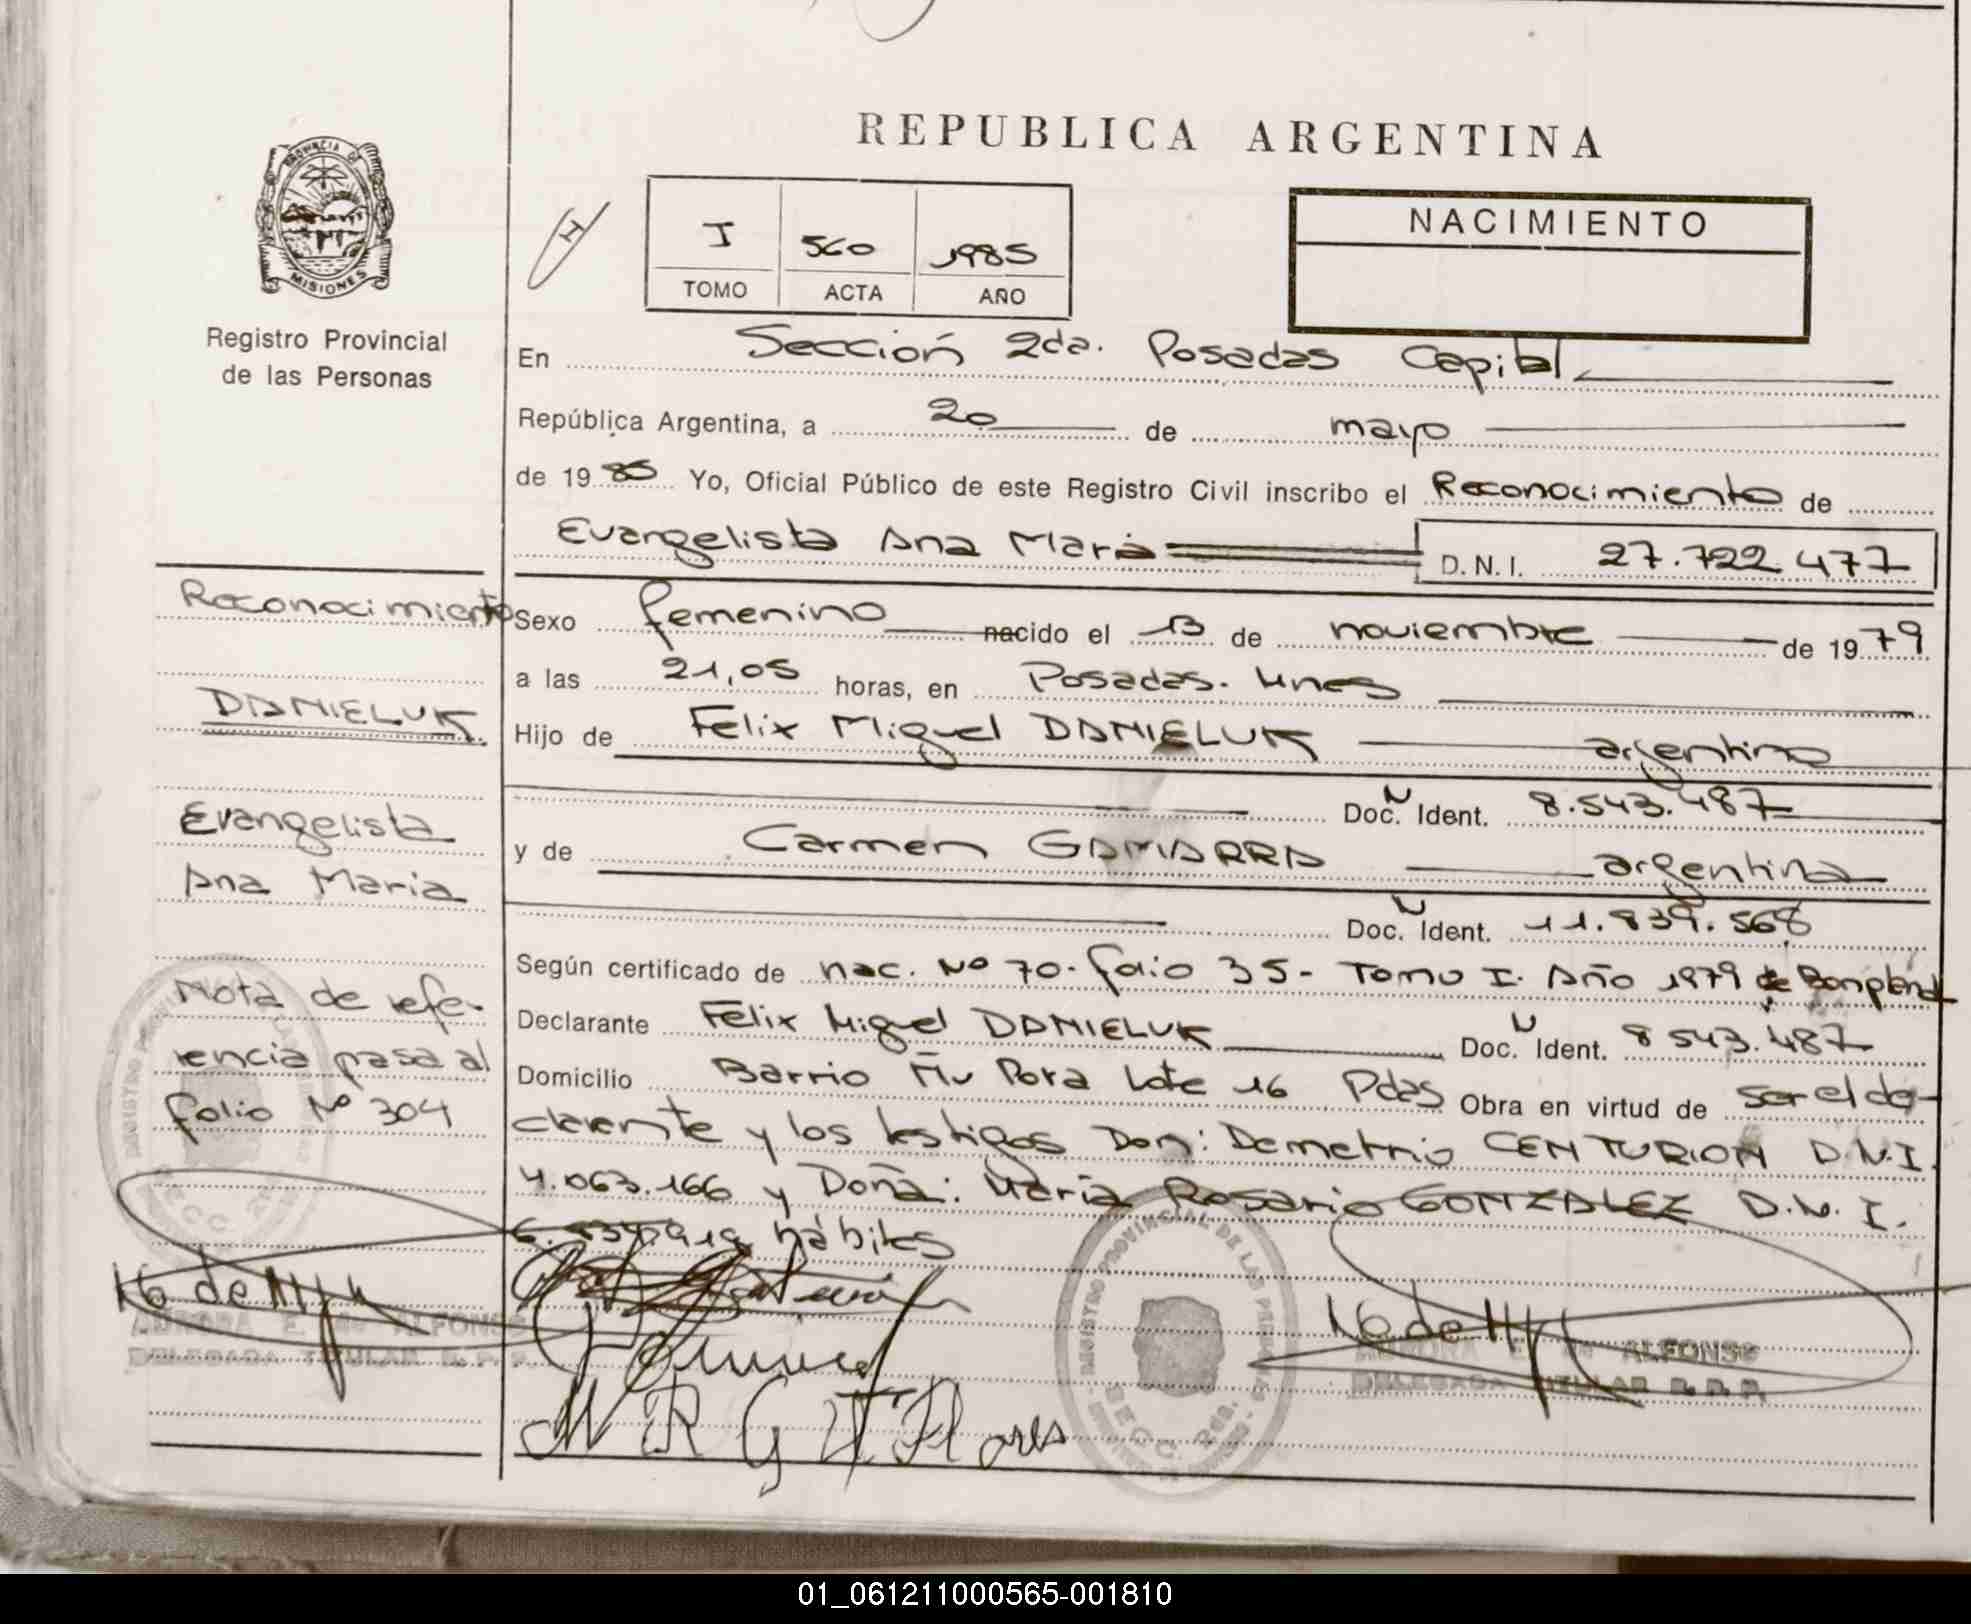 REPUBLICA ARGENTINA
PROVINCIA DE
MISIONES
Registro Provincial
de las Personas
I 560 1985
TOMO ACTA AÑO
NACIMIENTO
En Sección 2da. Posadas Capital
República Argentina, a 20 de mayo
de 1985 Yo, Oficial Público de este Registro Civil inscribo el Reconocimiento de
Evangelista Ana María D.N.I. 27.722.477
Sexo femenino nacido el 13 de noviembre de 1979
a las 21,05 horas, en Posadas. Mnes
Hijo de Felix Miguel DANIELUK argentino
Doc. Ident. 8.543.487
y de Carmen GAMARRA argentina
Doc. Ident. 11.839.568
Según certificado de nac. Nº 70. folio 35 - Tomo I. Año 1979 de Bonpland
Declarante Felix Miguel DANIELUK Doc. Ident. 8543.487
Domicilio Barrio Ñu Pora Lote 16 Pdas Obra en virtud de ser el de-
clarante y los testigos Don: Demetrio CENTURION D.N.I.
4.063.166 y Doña: María Rosario GONZALEZ D.N.I.
hábiles
Reconocimiento
DANIELUK
Evangelista
Ana Maria
Nota de refe-
rencia pasa al
folio Nº 304
AURORA E. de ALFONSO
DELEGADA TITULAR R.P.P.
M R G
Flores
REGISTRO PROVINCIAL DE LAS PERSONAS
SECC. 2da.
AURORA E. de ALFONSO
DELEGADA TITULAR R.P.P.
01_061211000565-001810